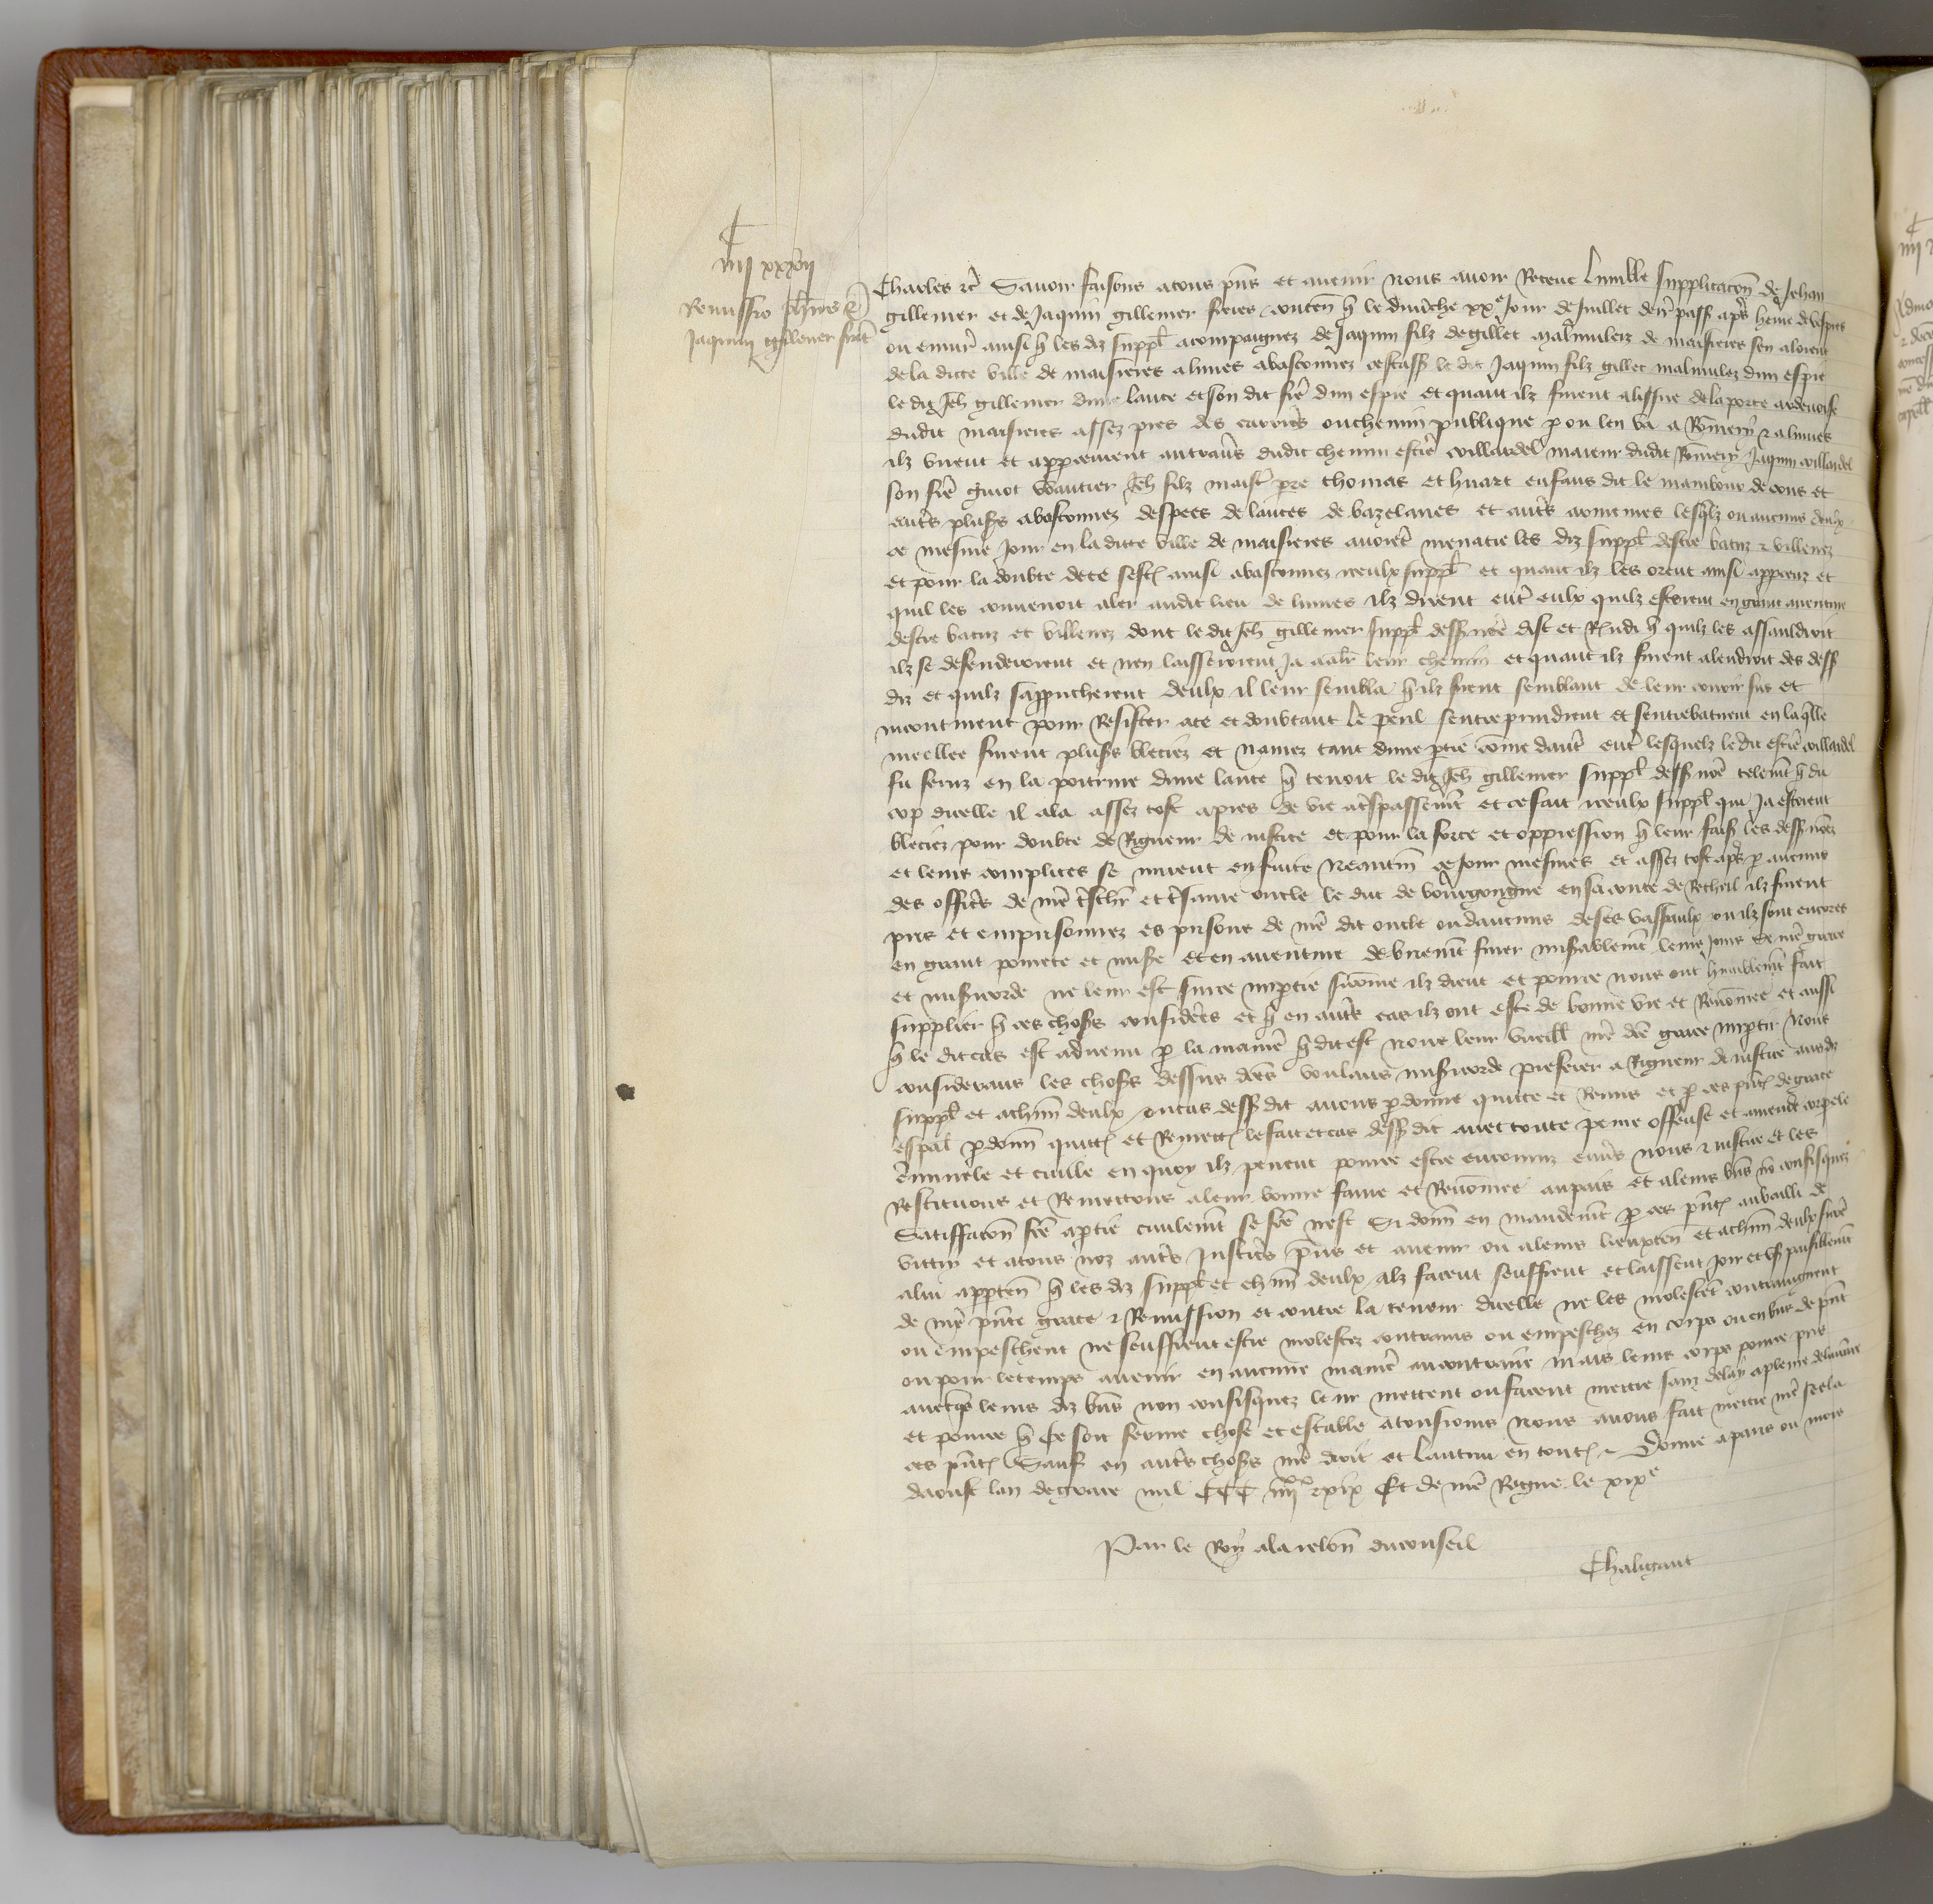 C
iiij xxxvij
Remissio Joh̄nis et
Jaquini gillemer fratr̄
Charles etc̄ Savoir faisons a tous pn̄s et avenir nous avoir Receue lumble supplicacōn de Jehan
gillemer et de Jaquin gillemer freres conten̄ q̄ le dimēche xxe Jour de Juillet den̄r pass ap̄s heure de vespres
ou environ ainsi q̄ les diz suppl̄ acompaignez de Jaquin filz de gillet malmulez de maisieres sen aloient
de la dicte ville de maisieres a lumes abastonnez cestass le dit Jaquin filz gillet malmulez dun espie
le dit Jeh̄ gillemer dune lance et son dit frē dun espie et quant ilz furent a lissue de la porte ardenoise
dudit maisieres assez pres des carrieres ou chemin publique p ou len va a Rōmery et a lumes
ilz virent et apparceurent au travers dudit chemin estiē collardel maieur dudit Rōmery Jaquin collardel
son frē guiot vautier Jeh̄ filz maist̄ pre thomas et huart enfans dit le mambour de cons et
autr̄s plus̄s abastonnez despees de lances de bazelaires et autr̄s armeures lesq̄lz ou aucuns deulx
ce mesme Jour en la dicte ville de maisieres avoiēt menacie les diz suppl̄ destre batuz et villenez
et pour la doubte de ce sest̄ ainsi abastonnez iceulx suppl̄ et quant ilz les orent ainsi apperceuz et
quil les convenoit aler audit lieu de lumes ilz dirent entr̄ eulx quilz estoient en grant aventure
destre batuz et villenez dont le dit Jeh̄ gillemer suppl̄ dess nōe dist et Rn̄di q̄ quilz les assauldroit
ilz se defenderoient et nen laisseroient Ja a aler leur chemin et quant ilz furent a lendroit des dess
diz et quilz sapprucherent deulx il leur sembla q̄ilz firent semblant de leur courir sus et
incontinent pour Resister a ce et doubtant le peril sentreprindrent et sentrebatirent en laq̄lle
meslee furent plus̄s bleciez et navrez tant dune ptie cōme dautr̄ entr̄ lesquelz le dit estiē collardel
fu feruz en la poitrine dune lance q̄ tenoit le dit Jeh̄ gillemer suppl̄ dess nōe telemēt q̄ du
cop dicelle il ala assez tost apres de vie a tr̄spassemēt et ce fait iceulx suppl̄ qui Ja estoient
bleciez pour doubte de Rigueur de justice et pour la force et oppression q̄ leur fais les dess nōez
et leurs complices se mirent en fuite neantm̄ ce Jour mesmes et assez tost ap̄s p aucuns
des officēs de nrē tr̄schr̄ et tr̄same oncle le duc de bourgongne en sa contē de Rethel ilz furent
pris et emprisonnez es prisons de nrē dit oncle ou daucuns de ses vassaulx ou ilz sont encores
en grant povrete et mis̄e et en aventure de briefmēt finer mis̄ablemēt leurs Jours se nrē grace
et mis̄icorde ne leur est sur ce impartie si cōme ilz dient et pour ce nous ont humblemēt fait
supplier q̄ ces choses considerēs et q̄ en autr̄s cas ilz ont este de bonne vie et Renōmee et aussi
q̄ le dit cas est advenu p la manierē q̄ dit est nous leur vueill̄ nrē dcē grace impartir Nous
considerans les choses dessus dcēs voulans mis̄icorde preferer a Rigueur de justice ausdiz
suppl̄ et a chun̄ deulx ou cas dess dit avons pdonne quicte et Remis et p ces pn̄t̄ de grace
esp̄al pdonn̄ quitt̄ et Remett̄ le fait et cas dess dit avec toute peine offense et amende corpele
crimin̄ele et civile en quoy ilz pevent pour ce estre encouruz envers nous et justice et les
Restituons et Remettons a leur bonne fame et Renōmee au pais et a leurs biēs nō confisquez
Satiffacōn fcē a ptie civilemēt se fcē nest Si donn̄ en mandemēt p ces pn̄t̄ au bailli de
vittry et a tous noz autr̄s Justiciers pn̄s et avenir ou a leurs lieuxten̄ et a chun̄ deulx sicē
a lui apptēn q̄ les diz suppl̄ et chun̄ deulx ilz facent seuffrent et laissent Joir et us̄ paisiblemēt
de nrē pn̄te grace et Remission et contre la teneur dicelle ne les molestēt contraignent
ou empeschent ne seuffrent estre molestez contrains ou empeschez en corps ou en biēs de pn̄t
ou pour le temps avenir en aucune manierē au contraire mais leurs corps pour ce pris
avecq̄s leurs diz biēs non confisquez leur mettent ou facent mettre sanz delay a pleine delivrāce
et pour ce q̄ ce soit ferme chose et estable a tousiours nous avons fait mettre nrē seela
ces pn̄t̄ Sauf en autr̄s choses nrē droit et lautrui en tout̄ Donne a paris ou mois
daoust lan de grace mil CCC iiijxx et xix Et de nrē Regne le xixe
Par le Roy a la relacōn du conseil
Chaligaut